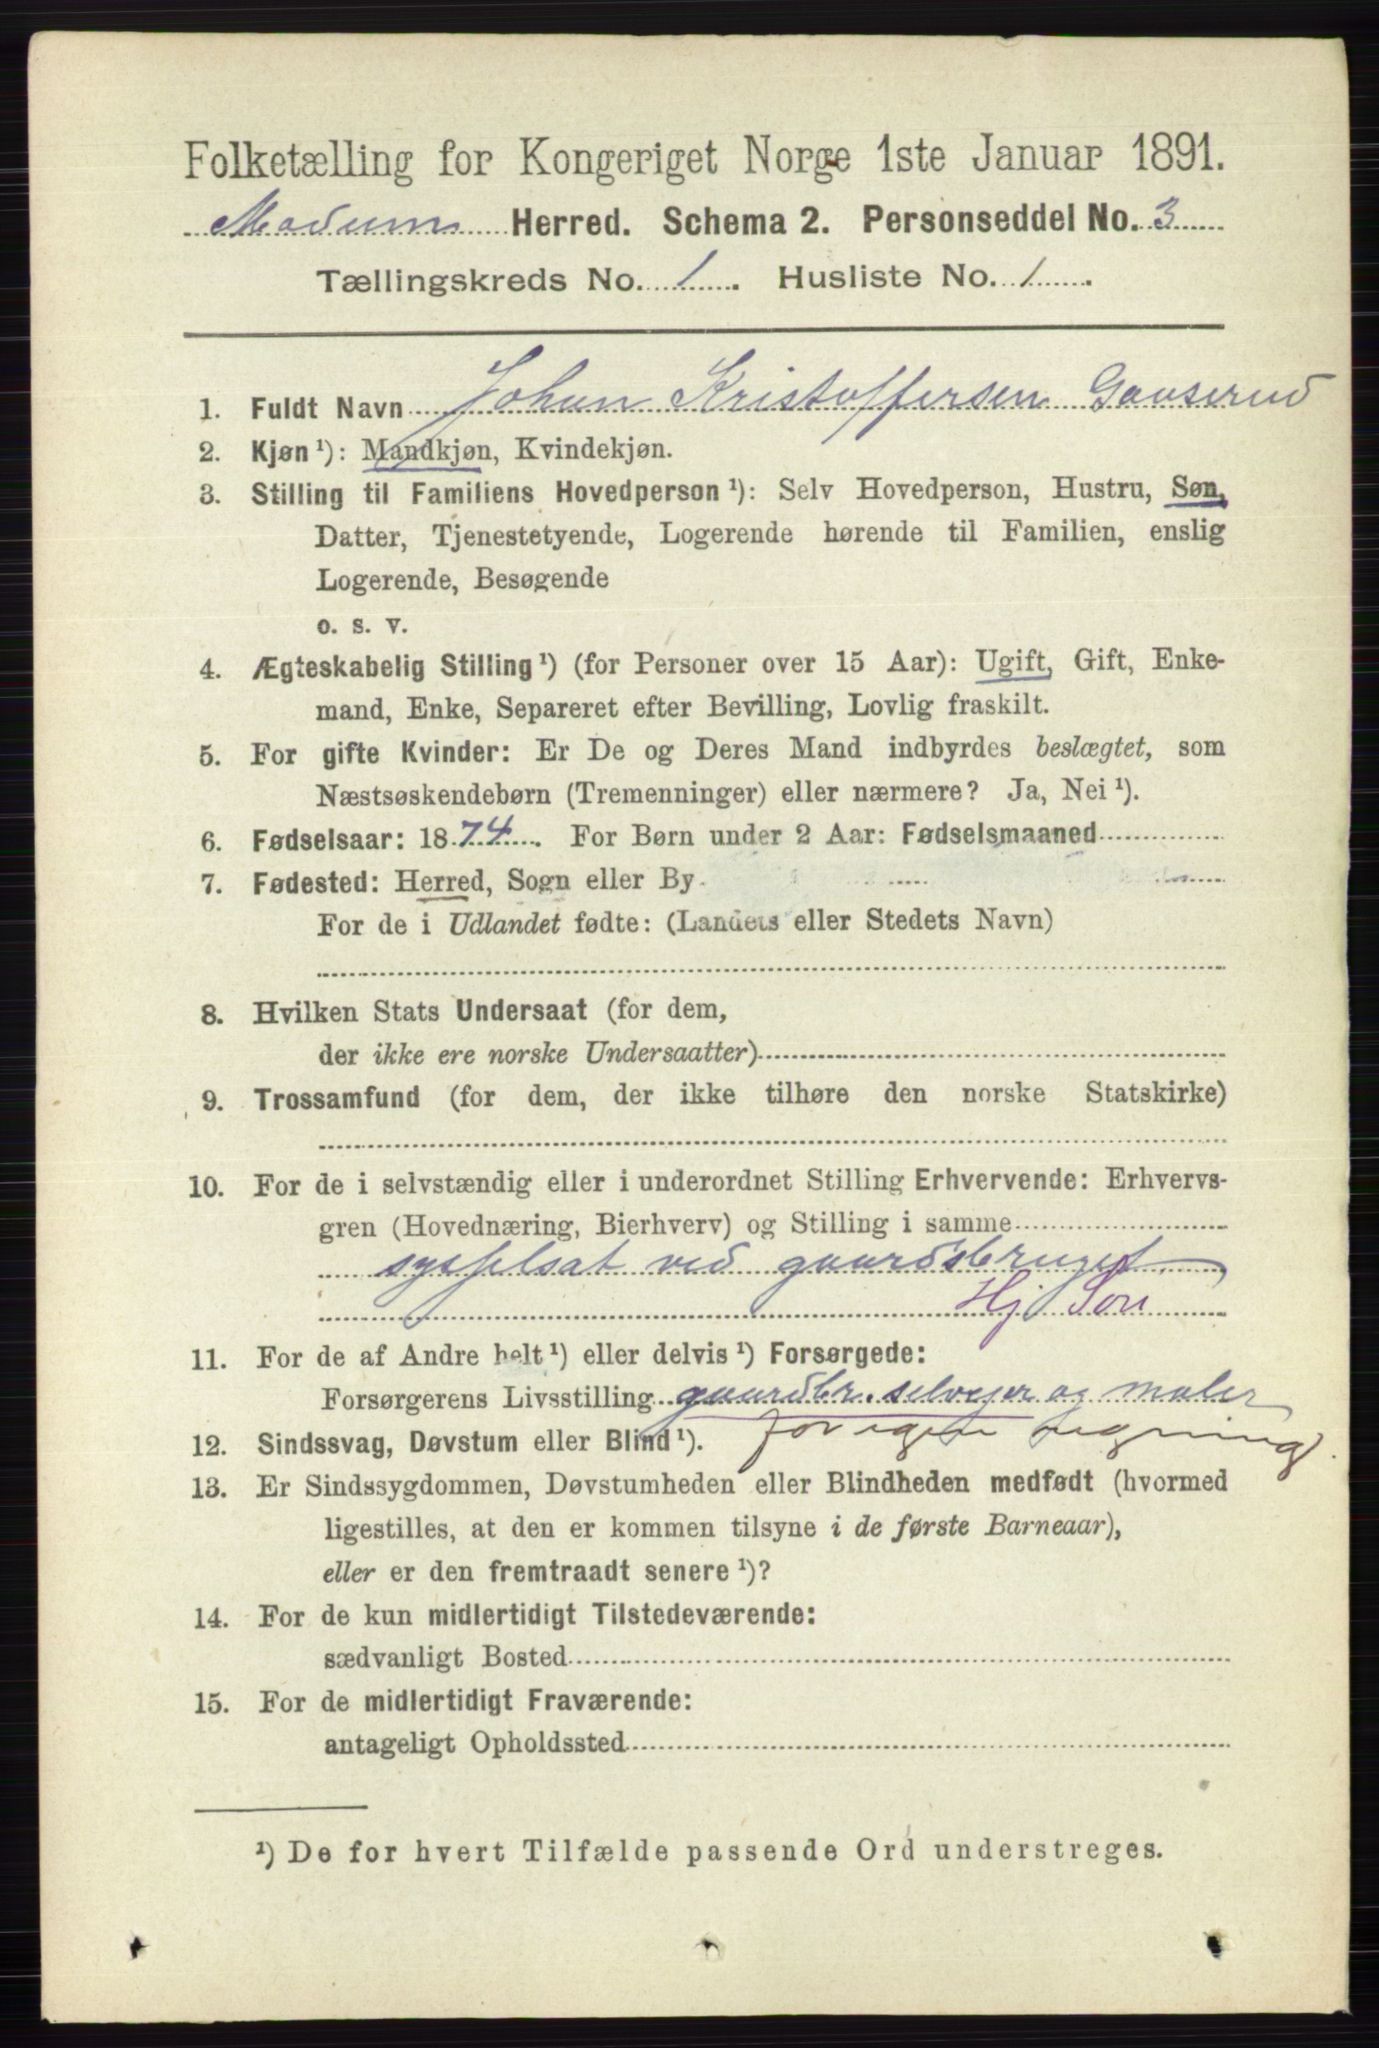 Folketælling for Kongeriget Norge 1ste Januar 1891.
Modum Herred. Schema 2. Personseddel No. 3
Tællingskreds No. 1. Husliste No. 1.
1. Fuldt Navn Johan Kristoffersen Gauserud
2. Kjøn ¹): Mandkjøn, Kvindekjøn.
3. Stilling til Familiens Hovedperson ¹): Selv Hovedperson, Hustru, Søn,
Datter, Tjenestetyende, Logerende hørende til Familien, enslig
Logerende, Besøgende
o. s. v.
4. Ægteskabelig Stilling ¹) (for Personer over 15 Aar): Ugift, Gift, Enke-
mand, Enke, Separeret efter Bevilling, Lovlig fraskilt.
5. For gifte Kvinder: Er De og Deres Mand indbyrdes beslægtet, som
Næstsøskendebørn (Tremenninger) eller nærmere? Ja, Nei ¹).
6. Fødselsaar: 1874. For Børn under 2 Aar: Fødselsmaaned
7. Fødested: Herred, Sogn eller By
For de i Udlandet fødte: (Landets eller Stedets Navn)
8. Hvilken Stats Undersaat (for dem,
der ikke ere norske Undersaatter)
9. Trossamfund (for dem, der ikke tilhøre den norske Statskirke)
10. For de i selvstændig eller i underordnet Stilling Erhvervende: Erhvervs-
gren (Hovednæring, Bierhverv) og Stilling i samme
sysselsat ved gaardsbruget
Hj Søn
11. For de af Andre helt ¹) eller delvis ¹) Forsørgede:
Forsørgerens Livsstilling gaardbr. selvejer og maler
for egen regning
12. Sindssvag, Døvstum eller Blind ¹).
13. Er Sindssygdommen, Døvstumheden eller Blindheden medfødt (hvormed
ligestilles, at den er kommen tilsyne i de første Barneaar),
eller er den fremtraadt senere ¹)?
14. For de kun midlertidigt Tilstedeværende:
sædvanligt Bosted
15. For de midlertidigt Fraværende:
antageligt Opholdssted
¹) De for hvert Tilfælde passende Ord understreges.